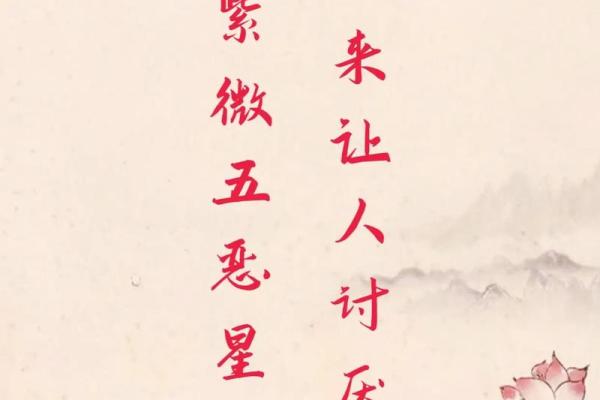 紫微五恶星
来让人讨厌